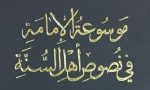 موسوعة الإمامة
في نصوص أهل السنة